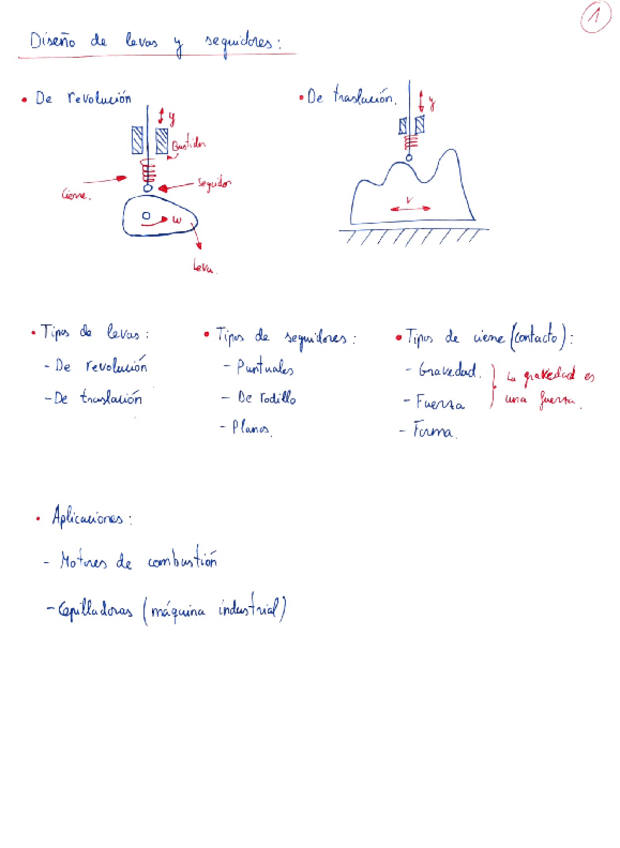 1
Diseño de levas y seguidores:
• De revolución
• De traslación.
y
y
Bastidor
Cierre.
seguidor
w
v
Leva.
• Tipos de levas:
- De revolución
- De traslación
• Tipos de seguidores:
- Puntuales
- De rodillo
- Planos.
• Tipos de cierre (contacto):
- Gravedad.
- Fuerza
- Forma.
La gravedad es
una fuerza.
• Aplicaciones:
- Motores de combustión
- Cepilladoras (máquina industrial)